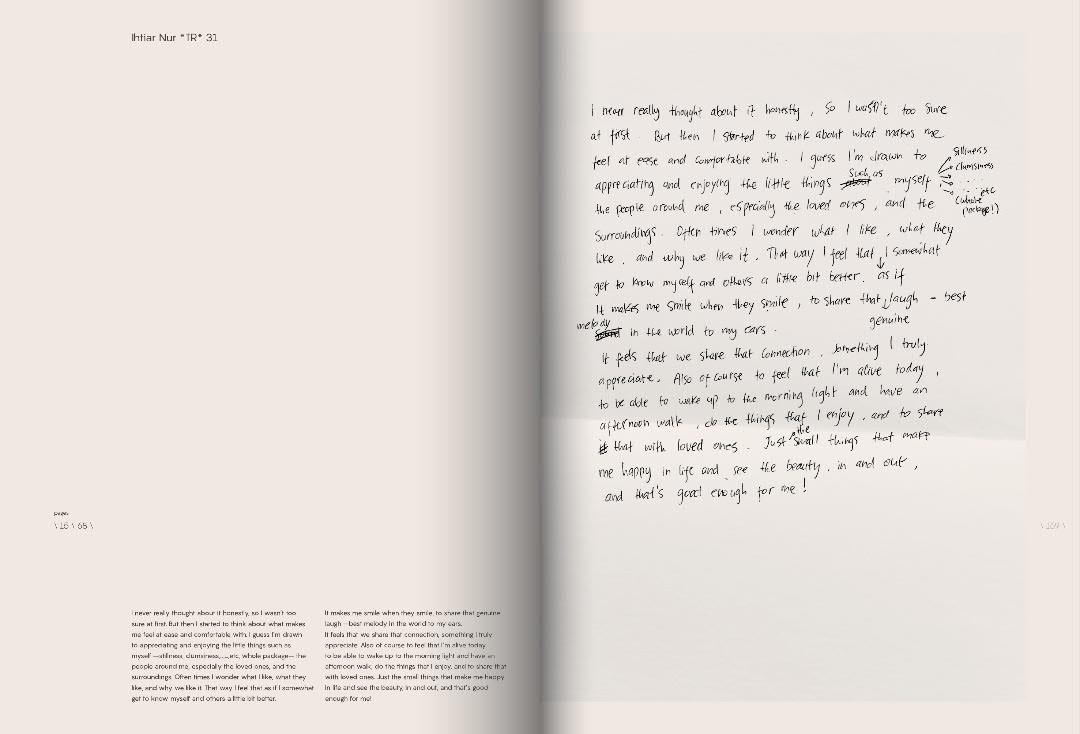 Ihtiar Nur *TR* 31
pages
\ 16 \ 68 \
I never really thought about it honestly, so I wasn't too
sure at first. But then I started to think about what makes
me feel at ease and comfortable with. I guess I'm drawn
to appreciating and enjoying the little things such as
myself —silliness, clumsiness,...,etc, whole package— the
people around me, especially the loved ones, and the
surroundings. Often times I wonder what I like, what they
like, and why we like it. That way I feel that as if I somewhat
get to know myself and others a little bit better.
It makes me smile when they smile, to share that genuine
laugh —best melody in the world to my ears.
It feels that we share that connection, something I truly
appreciate. Also of course to feel that I'm alive today
to be able to wake up to the morning light and have an
afternoon walk, do the things that I enjoy, and to share that
with loved ones. Just the small things that make me happy
in life and see the beauty, in and out, and that's good
enough for me!
I never really thought about it honestly, so I wasn't too sure
at first. But then I started to think about what makes me
feel at ease and comfortable with. I guess I'm drawn to
silliness
clumsiness
. . . .
. . . . etc
(whole package!)
such as
appreciating and enjoying the little things about myself
the people around me, especially the loved ones, and the
surroundings. Often times I wonder what I like, what they
like, and why we like it. That way I feel that I somewhat
as if
get to know myself and others a little bit better.
It makes me smile when they smile, to share that laugh - best
genuine
melody
in the world to my ears.
it feels that we share that connection, something I truly
appreciate. Also of course to feel that I'm alive today,
to be able to wake up to the morning light and have an
afternoon walk, do the things that I enjoy, and to share
the
it that with loved ones. Just small things that make
me happy in life and see the beauty, in and out,
and that's good enough for me!
\ 169 \